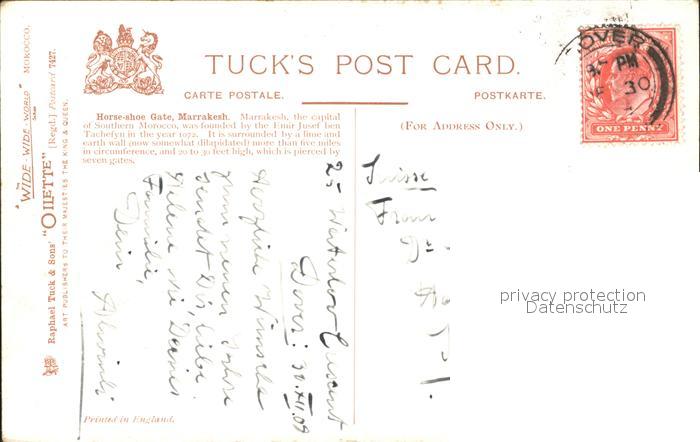 TUCK'S POST CARD.
CARTE POSTALE.
POSTKARTE.
(FOR ADDRESS ONLY.)
Horse-shoe Gate, Marrakesh. Marrakesh, the capital
of Southern Morocco, was founded by the Emir Jusef ben
Tachefyn in the year 1072. It is surrounded by a lime and
earth wall (now somewhat dilapidated) more than five miles
in circumference, and 20 to 30 feet high, which is pierced by
seven gates.
"WIDE-WIDE-WORLD"
MOROCCO.
Raphael Tuck & Sons' "OILETTE" [Regd.] Postcard 7427.
ART PUBLISHERS TO THEIR MAJESTIES THE KING & QUEEN.
25 Waterloo Crescent
Dover: 30.XII.09
Herzliche Wünsche
zum neuen Jahre
sendet Dir, liebe
Helene und Deiner
Familie,
Deine
Suisse
Frau
DOVER
PM
30
ONE PENNY
privacy protection
Datenschutz
Printed in England.